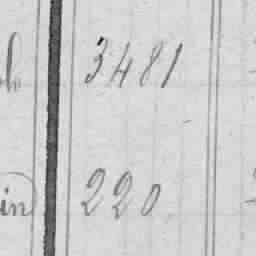 3481
in 220